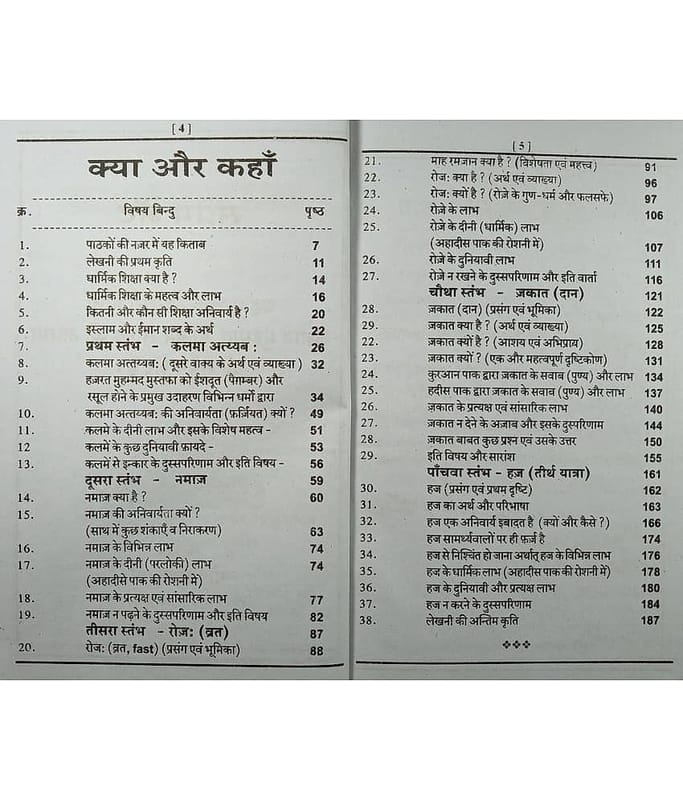 [ 4 ]
क्या और कहाँ
क्र. विषय बिन्दु पृष्ठ
1. पाठकों की नज़र में यह किताब 7
2. लेखनी की प्रथम कृति 11
3. धार्मिक शिक्षा क्या है ? 14
4. धार्मिक शिक्षा के महत्व और लाभ 16
5. कितनी और कौन सी शिक्षा अनिवार्य है ? 20
6. इस्लाम और ईमान शब्द के अर्थ 22
7. प्रथम स्तंभ - कलमा अत्य्यब : 26
8. कलमा अत्तय्यब: ( दूसरे वाक्य के अर्थ एवं व्याख्या ) 32
9. हज़रत मुहम्मद मुस्तफ़ा को ईशदूत (पैग़म्बर) और
रसूल होने के प्रमुख उदाहरण विभिन्न धर्मों द्वारा 34
10. कलमा अत्तय्यब: की अनिवार्यता (फ़र्ज़ियत) क्यों ? 49
11. कलमे के दीनी लाभ और इसके विशेष महत्व - 51
12 कलमे के कुछ दुनियावी फ़ायदे - 53
13. कलमें से इन्कार के दुस्सपरिणाम और इति विषय - 56
दूसरा स्तंभ - नमाज़ 59
14. नमाज़ क्या है ? 60
15. नमाज़ की अनिवार्यता क्यों ?
(साथ में कुछ शंकाएँ व निराकरण) 63
16. नमाज़ के विभिन्न लाभ 74
17. नमाज़ के दीनी (परलोकी) लाभ 74
(अहादीसे पाक की रोशनी में)
18. नमाज़ के प्रत्यक्ष एवं सांसारिक लाभ 77
19. नमाज़ न पढ़ने के दुस्सपरिणाम और इति विषय 82
तीसरा स्तंभ - रोज़: (व्रत) 87
20. रोज: (व्रत, fast) (प्रसंग एवं भूमिका) 88
[ 5 ]
21. माह रमजान क्या है ? (विशेषता एवं महत्त्व) 91
22. रोज: क्या है ? (अर्थ एवं व्याख्या) 96
23. रोज: क्यों है ? (रोज़े के गुण-धर्म और फलसफे) 97
24. रोज़े के लाभ 106
25. रोज़े के दीनी (धार्मिक) लाभ
(अहादीस पाक की रोशनी में) 107
26. रोज़े के दुनियावी लाभ 111
27. रोज़े न रखने के दुस्सपरिणाम और इति वार्ता 116
चौथा स्तंभ - ज़कात (दान) 121
28. ज़कात (दान) (प्रसंग एवं भूमिका) 122
29. ज़कात क्या है ? (अर्थ एवं व्याख्या) 125
22. ज़कात क्यों है ? (आशय एवं अभिप्राय) 128
23. ज़कात क्यों ? (एक और महत्वपूर्ण दृष्टिकोण) 131
24. कुरआन पाक द्वारा ज़कात के सवाब (पुण्य) और लाभ 134
25. हदीस पाक द्वारा ज़कात के सवाब (पुण्य) और लाभ 137
26. ज़कात के प्रत्यक्ष एवं सांसारिक लाभ 140
27. ज़कात न देने के अज़ाब और इसके दुस्परिणाम 144
28. ज़कात बाबत कुछ प्रश्न एवं उसके उत्तर 150
29. इति विषय और सारांश 155
पाँचवा स्तंभ - हज़ (तीर्थ यात्रा) 161
30. हज (प्रसंग एवं प्रथम दृष्टि) 162
31. हज का अर्थ और परिभाषा 163
32. हज एक अनिवार्य इबादत है (क्यों और कैसे ?) 166
33. हज सामर्थ्यवालों पर ही फ़र्ज़ है 174
34. हज से निश्चिंत हो जाना अर्थात् हज के विभिन्न लाभ 176
35. हज के धार्मिक लाभ (अहादीस पाक की रोशनी में) 178
36. हज के दुनियावी और प्रत्यक्ष लाभ 180
37. हज न करने के दुस्सपरिणाम 184
38. लेखनी की अन्तिम कृति 187